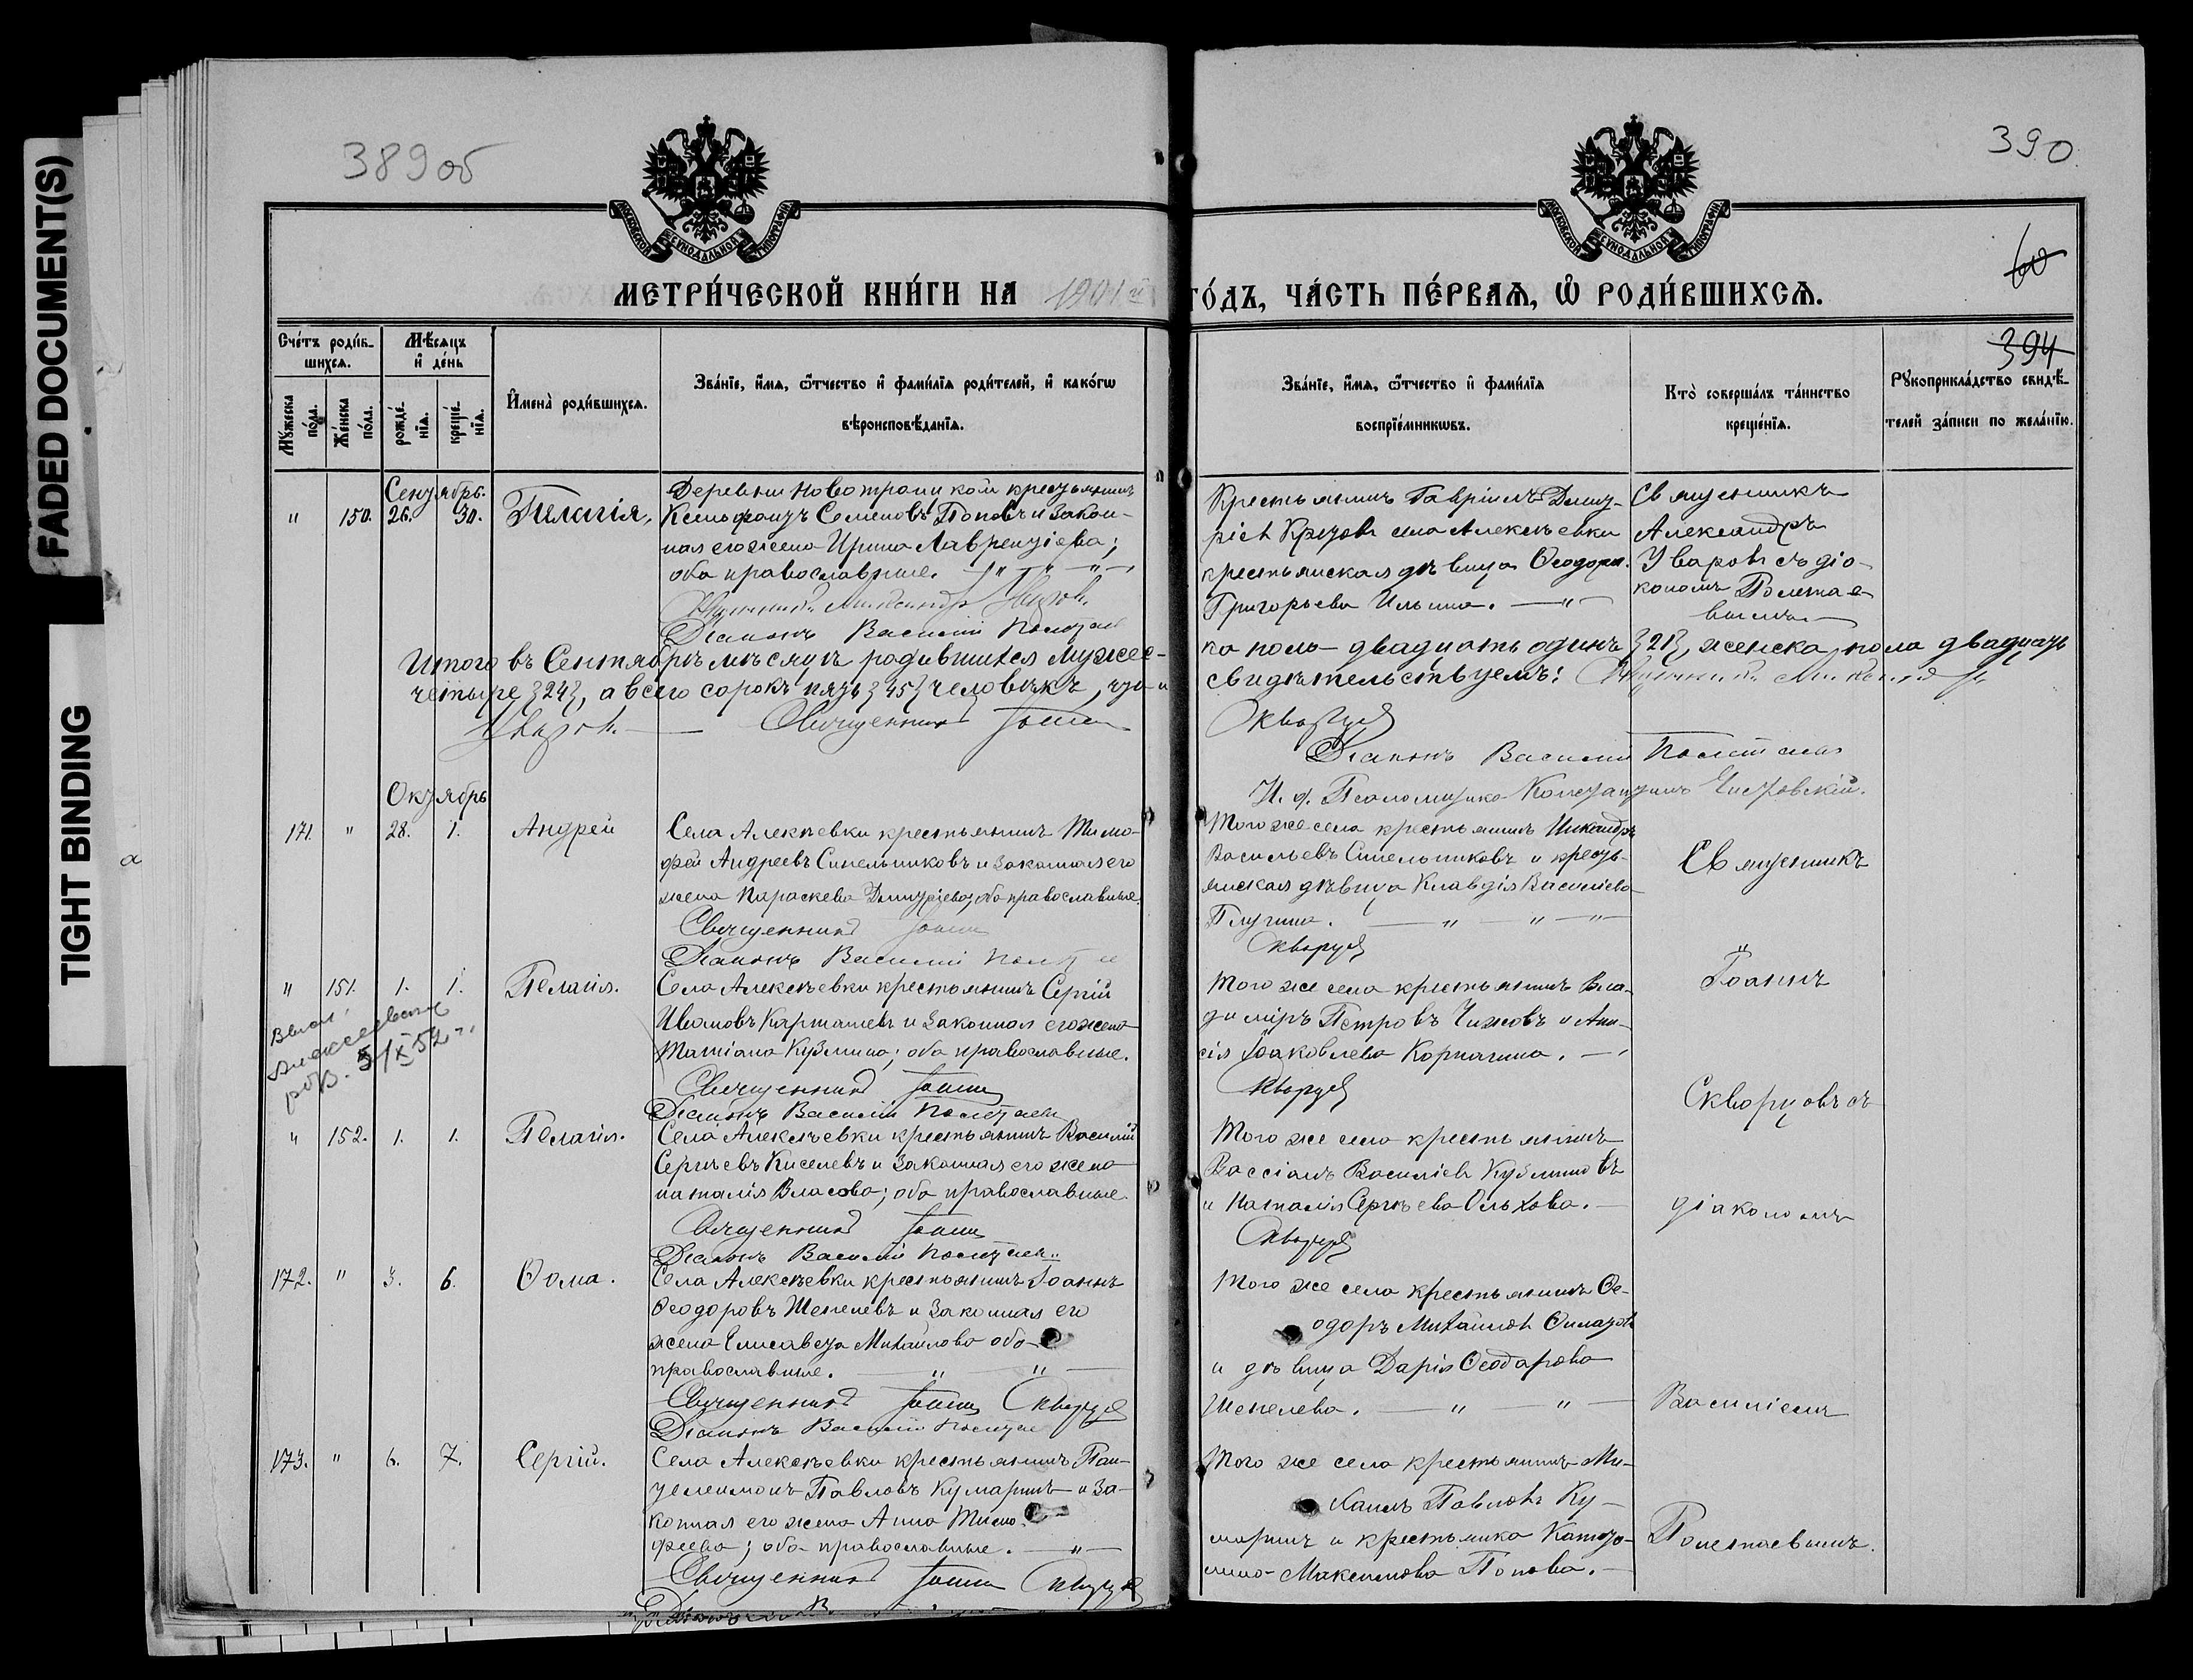 FADED DOCUMENT(S)
TIGHT BINDING
389об
390
МОСКОВСКОЙ СѴНОДАЛЬНОЙ ТИПОГРАФІИ
МОСКОВСКОЙ СѴНОДАЛЬНОЙ ТИПОГРАФІИ
60
МЕТРИ́ЧЕСКОЙ КНИ́ГИ НА 1901й ГО́ДЪ, ЧА́СТЬ ПЕ́РВАЯ, Ѡ РОДИ́ВШИХСЯ.
394
Сче́тъ роди́в-
шихся.
Му́жеска по́ла.
Же́нска по́ла.
Мѣ́сяцъ
и де́нь
рожде́-
нія.
креще́-
нія.
И҆мена̀ роди́вшихся.
Зва́ніе, и҆́мя, ѻ҆́тчество и҆ фами́лія роди́телей, и҆ како́гѡ
вѣроисповѣ́данія.
Зва́ніе, и҆́мя, ѻ҆́тчество и҆ фами́лія
воспріе́мникѡвъ.
Кто̀ соверша́лъ та́инство
креще́нія.
Рꙋкоприкла́дство свидѣ́-
телей за́писи по жела́нію.
Сентябрь.
" 150. 26. 30. Пилагія.
Деревни Новотроицкой крестьянинъ
Ксенофонтъ Семеновъ Поповъ и закон-
ная его жена Ирина Лаврентіева;
оба православные.
Діаконъ Василій Полетаев
Крестьянинъ Гавріилъ Димит-
ріев села Алексѣевки
крестьянская дѣвица Ѳеодора
Григорьева Ильина.
Священникъ
Александръ
Уваровъ съ діа-
кономъ Полетае-
вымъ
Итого въ Сентябрѣ мѣсяцѣ родившихся мужес-
ка пола двадцать одинъ {21}, женска пола двадцать
четыре {24}, а всего сорокъ пять {45} человѣкъ, что и
свидѣтельствуемъ: Священникъ Александръ
Уваров. Священникъ Іоаннъ
Скворцов
Діаконъ Василій Полетаев
И. д. Псаломщика Константинъ
Октябрь
171. " 28. 1. Андрей
Села Алексѣевки крестьянинъ Тимо-
фей Андреевъ Синельниковъ и законная его
жена Параскева Димитріева, оба православные.
Священникъ Іоаннъ
Діаконъ Василій Полетаев
Того же села крестьянинъ Никандръ
Васильевъ Синельниковъ и кресть-
янская дѣвица Клавдія Василіева
Скворцов
Священникъ
Іоаннъ
" 151. 1. 1. Пелагія.
Села Алексѣевки крестьянинъ Сергій
Ивановъ Карташевъ и законная его жена
Татіана Кузмина; оба православные.
Священникъ Іоаннъ
Діаконъ Василій Полетаев
Того же села крестьянинъ Вла-
димиръ Петровъ Чижовъ и Ани-
сія Іаковлева Корнагина.
Скворцов
Скворцовъ съ
Выдан.
5/IX 52 г.
" 152. 1. 1. Пелагія.
Села Алексѣевки крестьянинъ Василій
Сергѣевъ Киселевъ и законная его жена
Наталія Власова; оба православные.
Священникъ Іоаннъ
Діаконъ Василій Полетаев
Того же села крестьянинъ
Вассіанъ Василіев Кузминовъ
и Наталія Сергѣева Ольхова.
Скворцов
діакономъ
172. " 3. 6. Ѳома.
Села Алексѣевки крестьянинъ Іоаннъ
Ѳеодоровъ Шепелевъ и законная его
жена Елисавета Михайлова оба
православные.
Священникъ Іоаннъ Скворцов
Діаконъ Василій Полетаев
Того же села крестьянинъ Ѳе-
одоръ Михайлов Филатов
и дѣвица Дарія Ѳеодорова
Шепелева.
Василіемъ
173. " 6. 7. Сергій.
Села Алексѣевки крестьянинъ Пан-
телеимонъ Павловъ Кумаринъ и за-
конная его жена Анна Тимо-
феева; оба православные.
Священникъ Іоаннъ Скворцов
Того же села крестьянинъ Ми-
хаилъ Павловъ Ку-
маринъ и крестьянка Кате-
рина Максимова Попова.
Полетаевымъ.